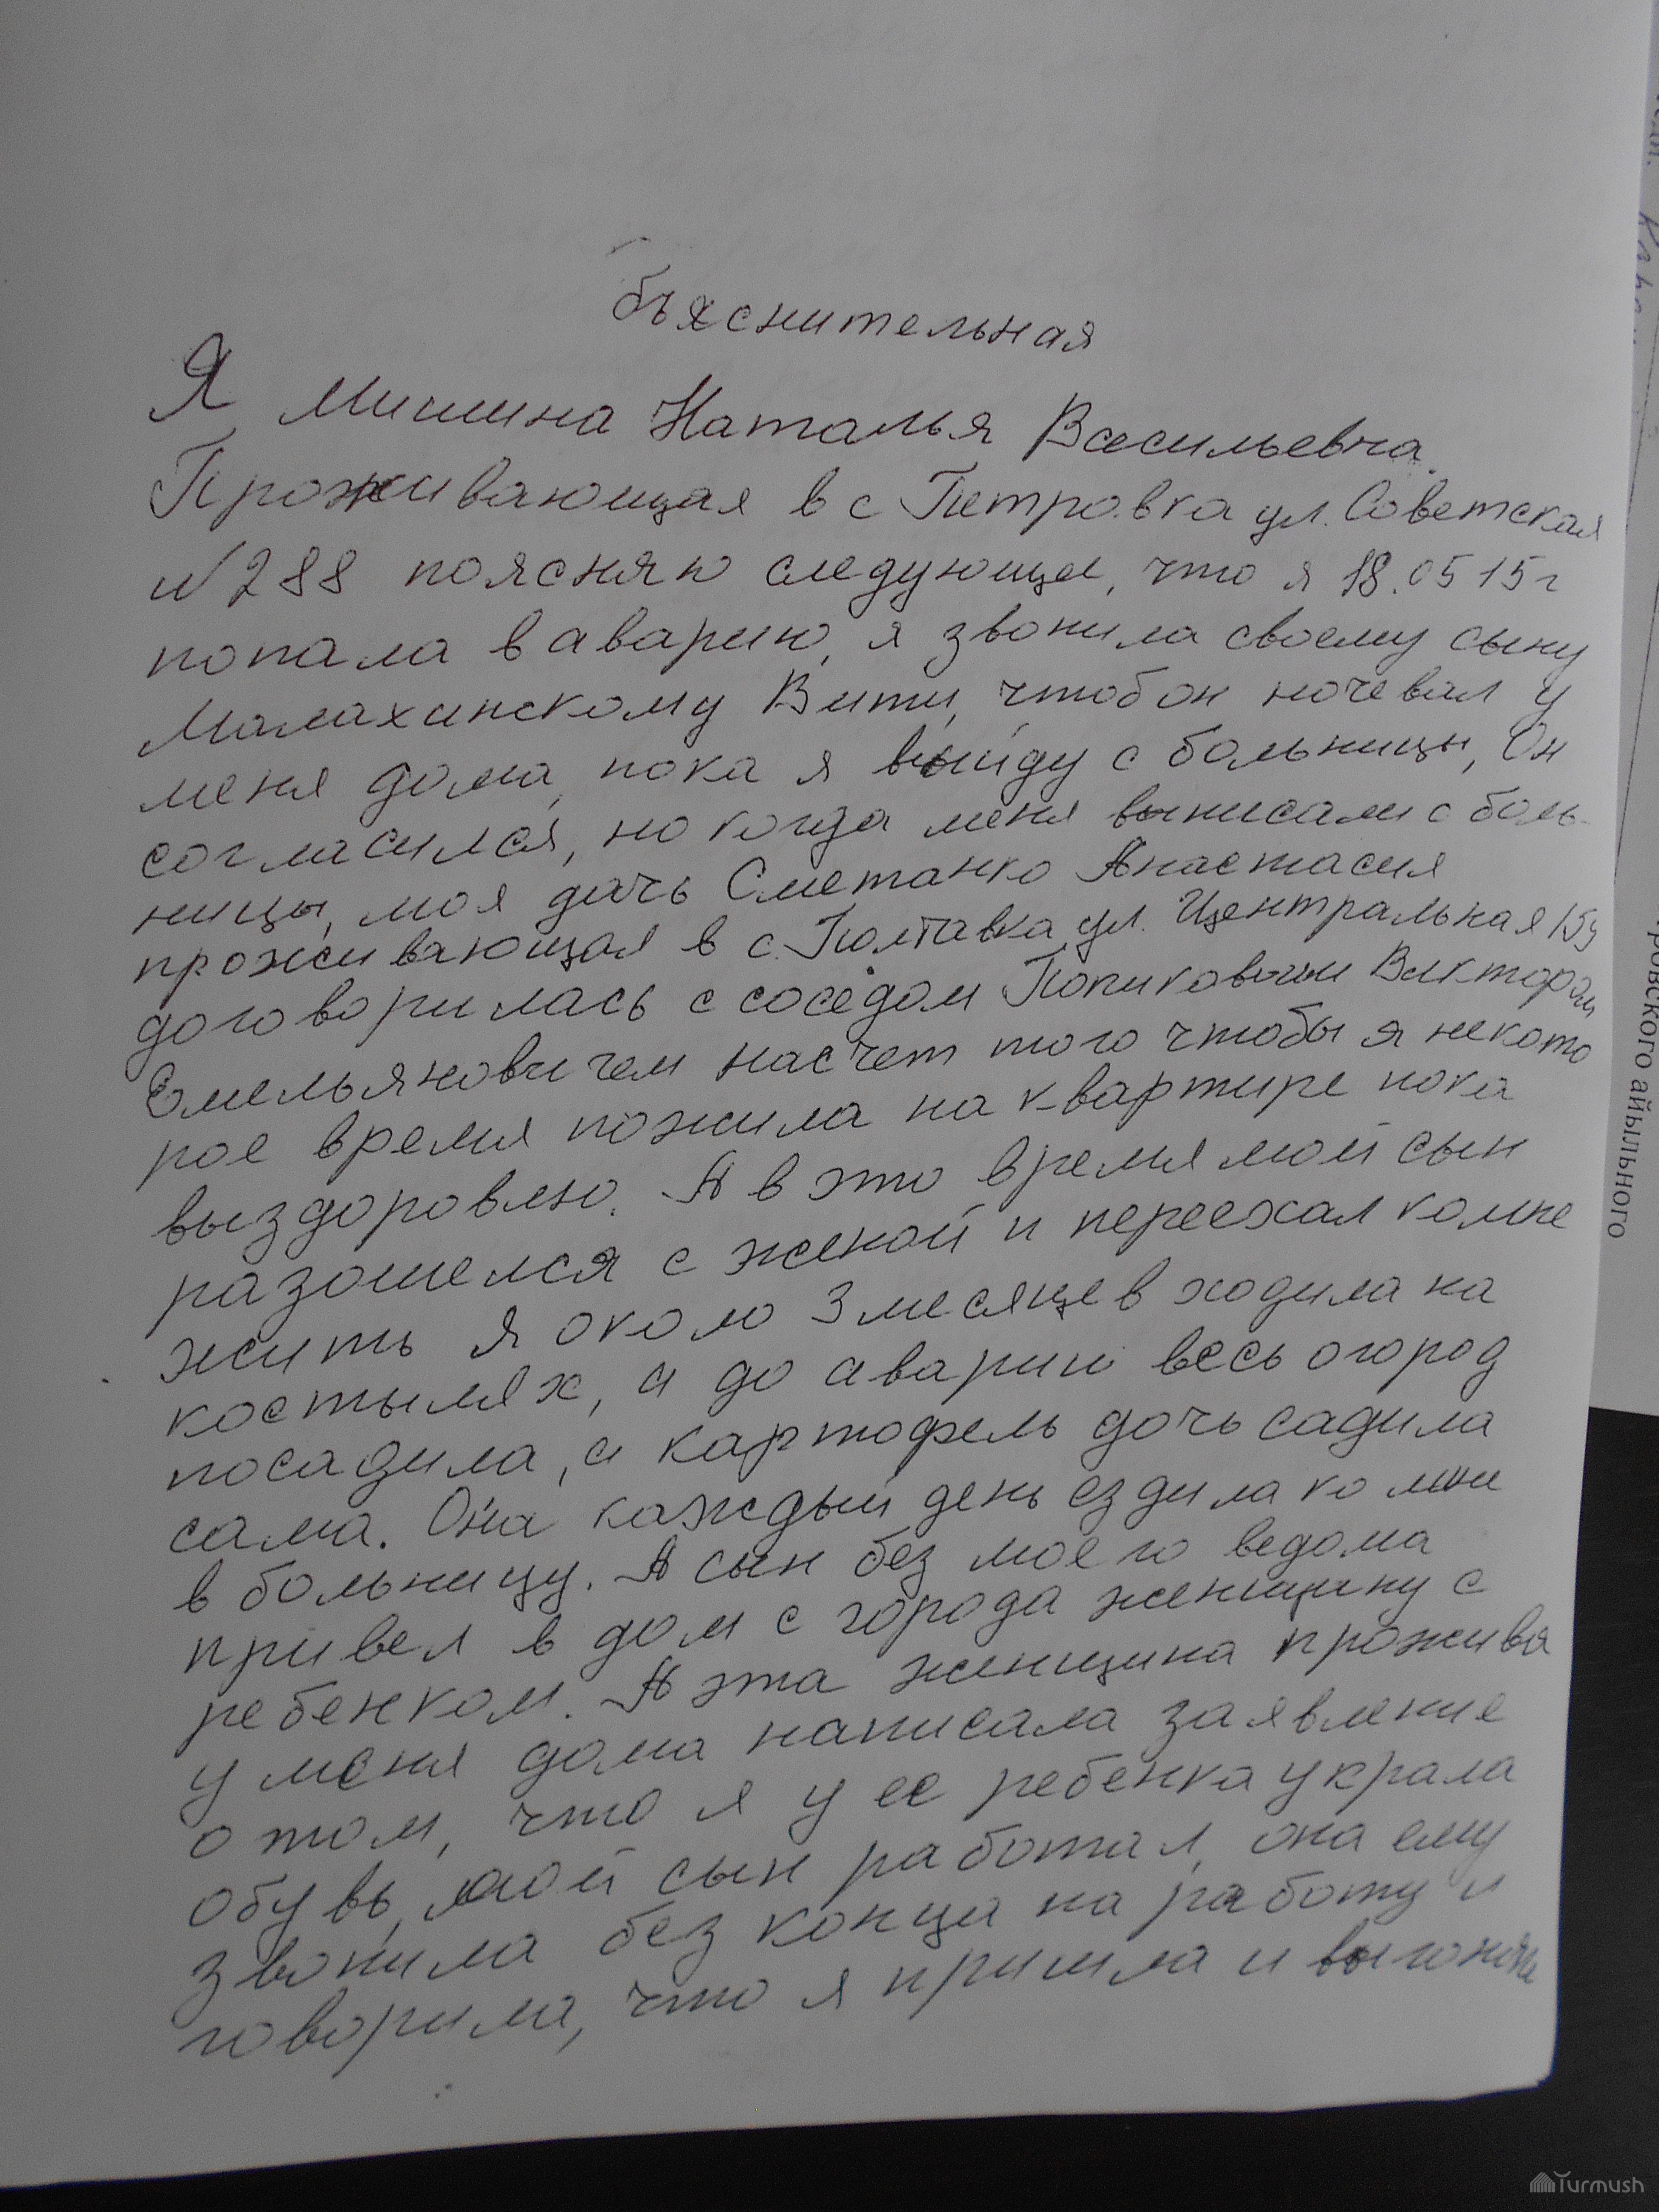 бъяснительная
Я Мишина Наталья Васильевна.
Проживающая в с Петровка ул. Советская
№288 поясняю следующее, что я 18.05 15г
попала в аварию, я звонила своему сыну
Малахинскому Вити, чтоб он ночевал у
меня дома, пока я выйду с больницы, Он
согласился, но когда меня выписали с боль-
ницы, моя дочь Сметанко Анастасия
проживающая в с. Полтавка ул. Центральная 159
договорилась с соседом Попиковым Виктором
Емельяновичем насчет того чтобы я некото
рое время пожила на квартире пока
выздоровлю. А в это время мой сын
разошелся с женой и переехал комне
жить я около 3 месяцев ходила на
костылях, а до аварии весь огород
посадила, а картофель дочь садила
сама. Она каждый день ездила ко мне
в больницу. А сын без моего ведома
привел в дом с города женщину с
ребенком. А эта женщина прожива
у меня дома написала заявление
о том, что я у ее ребенка украла
обувь, мой сын работал, она ему
звонила без конца на работу и
говорила, что я пришла и выгоняю
ровского айыльного
Turmush